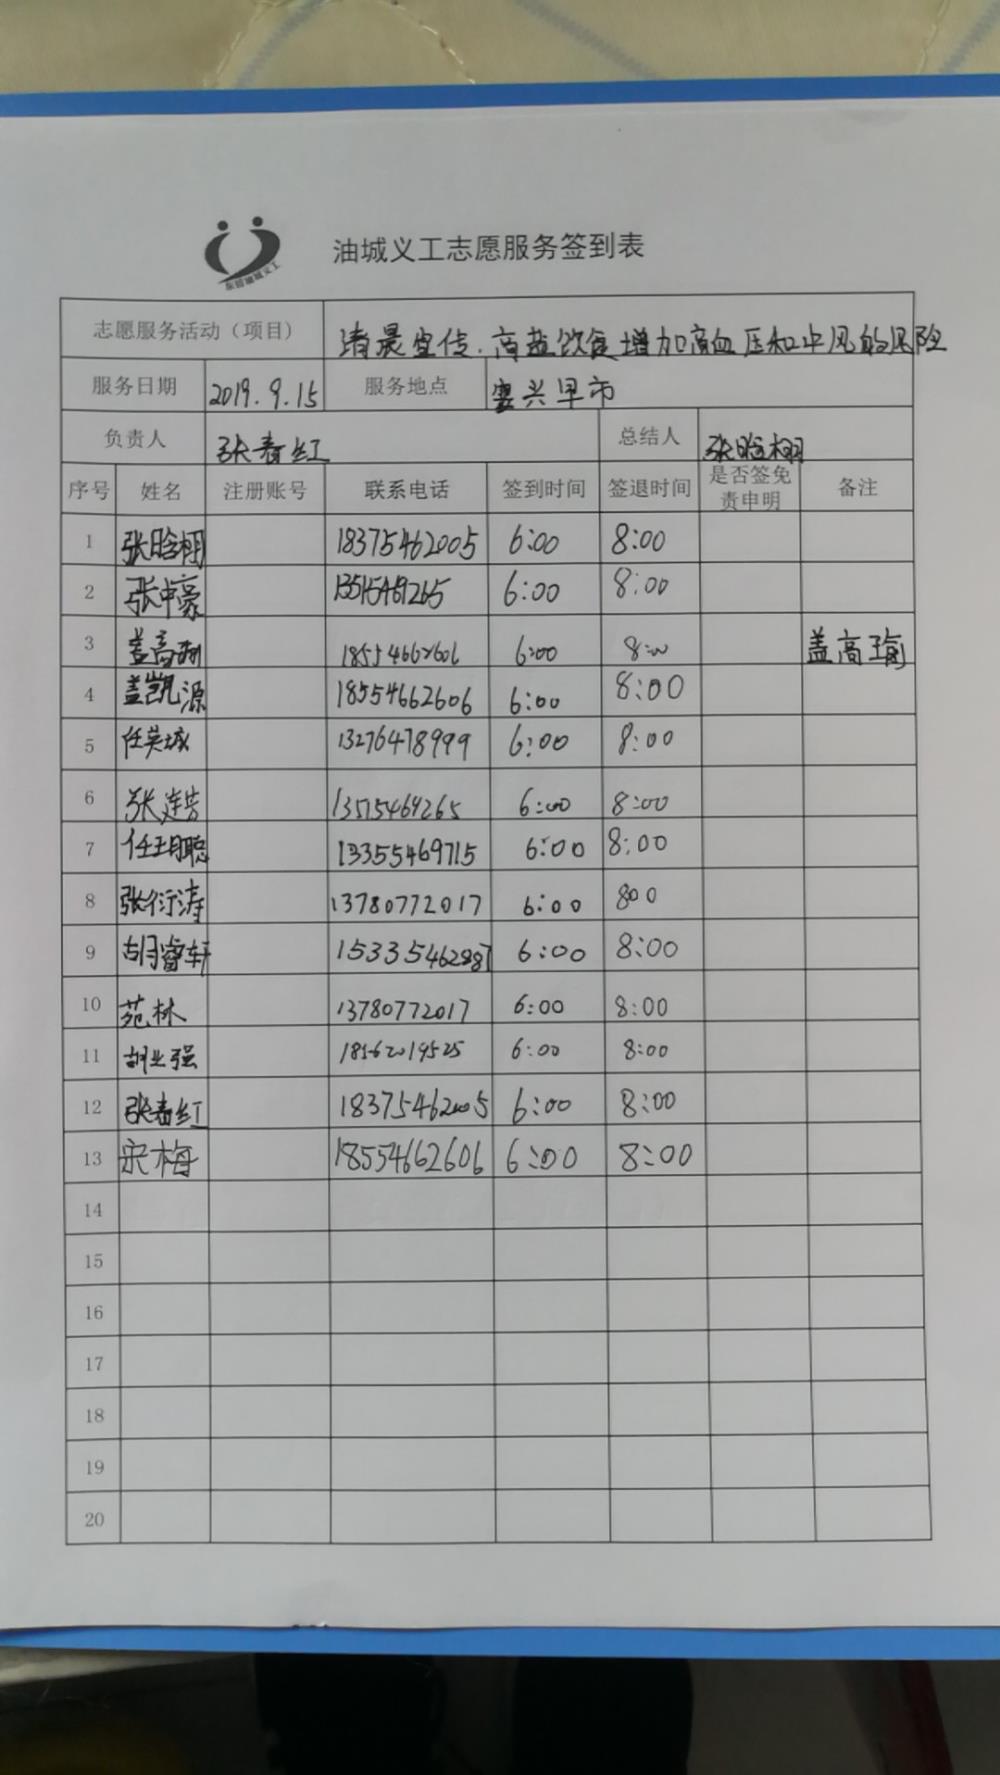 东营油城义工
油城义工志愿服务签到表
志愿服务活动（项目） 清晨宣传.高盐饮食增加高血压和中风的风险
服务日期 2019.9.15 服务地点 兴早市
负责人 张春红 总结人 张晗栩
序号 姓名 注册账号 联系电话 签到时间 签退时间 是否签免责申明 备注
1 张晗栩 18375462005 6:00 8:00
2 张中豪 6:00 8:00
3 盖高 18554662606 6:00 8:00 盖高瑜
4 盖凯源 18554662606 6:00 8:00
5 任英城 13276478999 6:00 8:00
6 张连芳 13515469265 6:00 8:00
7 任玥聪 13355469715 6:00 8:00
8 张衍涛 13780772017 6:00 800
9 胡睿轩 6:00 8:00
10 苑林 13780772017 6:00 8:00
11 胡业强 18562019525 6:00 8:00
12 张春红 18375462005 6:00 8:00
13 宋梅 18554662606 6:00 8:00
14
15
16
17
18
19
20